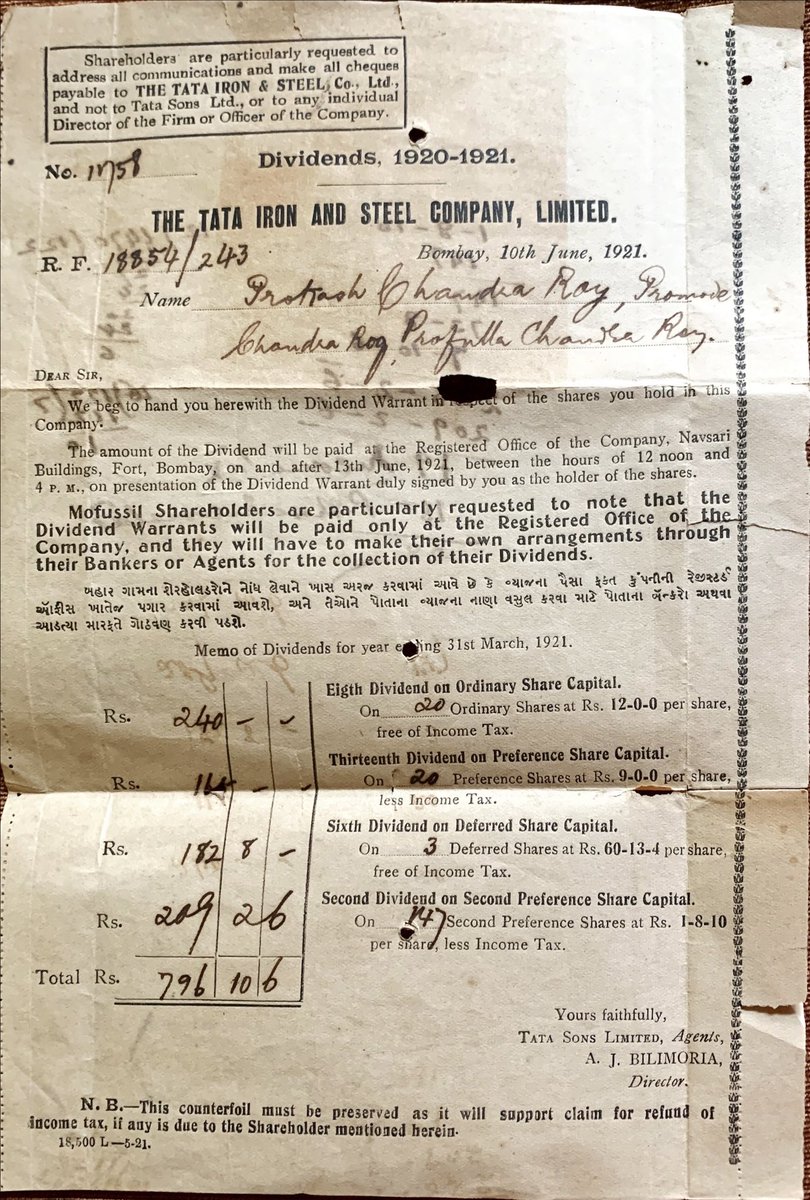 Shareholders are particularly requested to
address all communications and make all cheques
payable to THE TATA IRON & STEEL Co., Ltd.,
and not to Tata Sons Ltd., or to any individual
Director of the Firm or Officer of the Company.
No. 11758
Dividends, 1920-1921.
THE TATA IRON AND STEEL COMPANY, LIMITED.
R. F. 18854/243
Bombay, 10th June, 1921.
Name Prokash Chandra Roy, Promode
Chandra Roy, Profulla Chandra Roy.
DEAR SIR,
We beg to hand you herewith the Dividend Warrant in respect of the shares you hold in this
Company.
The amount of the Dividend will be paid at the Registered Office of the Company, Navsari
Buildings, Fort, Bombay, on and after 13th June, 1921, between the hours of 12 noon and
4 P. M., on presentation of the Dividend Warrant duly signed by you as the holder of the shares.
Mofussil Shareholders are particularly requested to note that the
Dividend Warrants will be paid only at the Registered Office of the
Company, and they will have to make their own arrangements through
their Bankers or Agents for the collection of their Dividends.
બહાર ગામના શેરહોલડરોને નોંધ લેવાને ખાસ અરજ કરવામાં આવે છે કે વ્યાજના પૈસા ફક્ત કુંપનીની રેજીસ્ટર્ડ
ઑફીસ ખાતેજ પગાર કરવામાં આવશે, અને તેઓને પોતાના વ્યાજના નાણા વસુલ કરવા માટે પોતાના બૅન્કરો અથવા
આડત્યા મારફતે ગોઠવણ કરવી પડશે.
Memo of Dividends for year ending 31st March, 1921.
Eigth Dividend on Ordinary Share Capital.
Rs. 240 - -
On 20 Ordinary Shares at Rs. 12-0-0 per share,
free of Income Tax.
Thirteenth Dividend on Preference Share Capital.
Rs. - -
On 20 Preference Shares at Rs. 9-0-0 per share,
less Income Tax.
Sixth Dividend on Deferred Share Capital.
Rs. 182 8 -
On 3 Deferred Shares at Rs. 60-13-4 per share,
free of Income Tax.
Second Dividend on Second Preference Share Capital.
Rs. 209 2 6
On 147 Second Preference Shares at Rs. 1-8-10
per share, less Income Tax.
Total Rs. 796 10 6
Yours faithfully,
TATA SONS LIMITED, Agents,
A. J. BILIMORIA,
Director.
N. B.—This counterfoil must be preserved as it will support claim for refund of
income tax, if any is due to the Shareholder mentioned herein.
18,500 L—5-21.